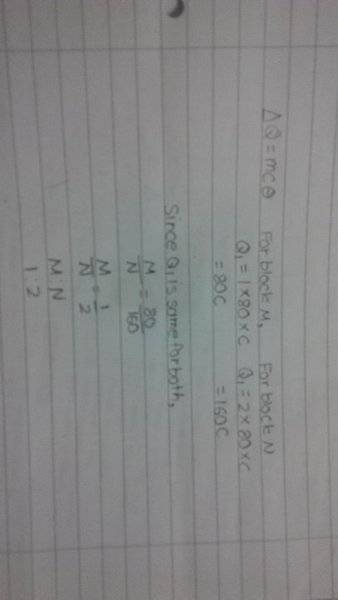 ΔQ = mcθ For block M, For block N
Q₁ = 1×80×C Q₁ = 2×80×C
= 80C = 160C
Since Q₁ is same for both,
M/N = 80/160
M/N = 1/2
M : N
1 : 2